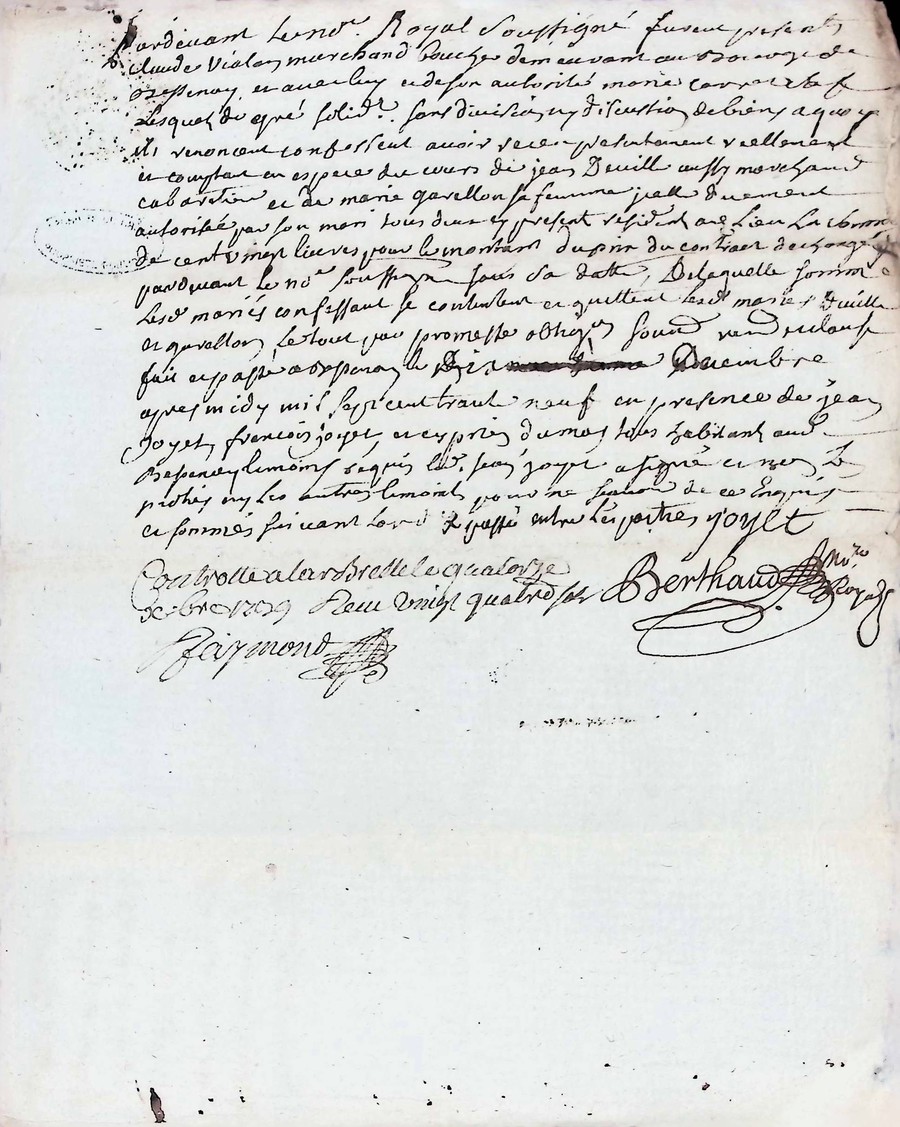 Pardevant le no.re Royal soussigné furent presents
claude Violay marchand boucher demeurant au Bourg de
Bessenay, et avec luy et de son autorité marie
Lesquels de gré solid.t sans division ny discution de biens a quoy
ils renoncent confessent avoir receu presentement reellement
et comptant en espece du cours de jean Deville aussy marchand
cabaretier et de marie gavellon sa femme icelle duement
autorisée par son mary tous deux cy present resident aud Lieu La somme
de cent vingt livres pour le montant du prix du contract
pardevant le no.re soussigné sous sa datte, De laquelle somme
Lesd mariés confessant se contentent et quittent lesd mariés Deville
et gavellon, Le tout par promesse oblig.on soumd renond clause
fait et passé a Bessenay le Decembre
apres midy mil sept cent trante neuf en presence de jean
joyet, françois joyet, et tous habitant aud
Bessenay temoins requis led. jean joyet a signé et non les
parties ny les autres temoins pour ne scavoir de ce Enquis
et sommés suivant Lord passé entre les parties joyet
Controllé a larBresle le quatorze
xbre 1739 Receu vingt quatre sols Berthaud No.re Royal
Raymond